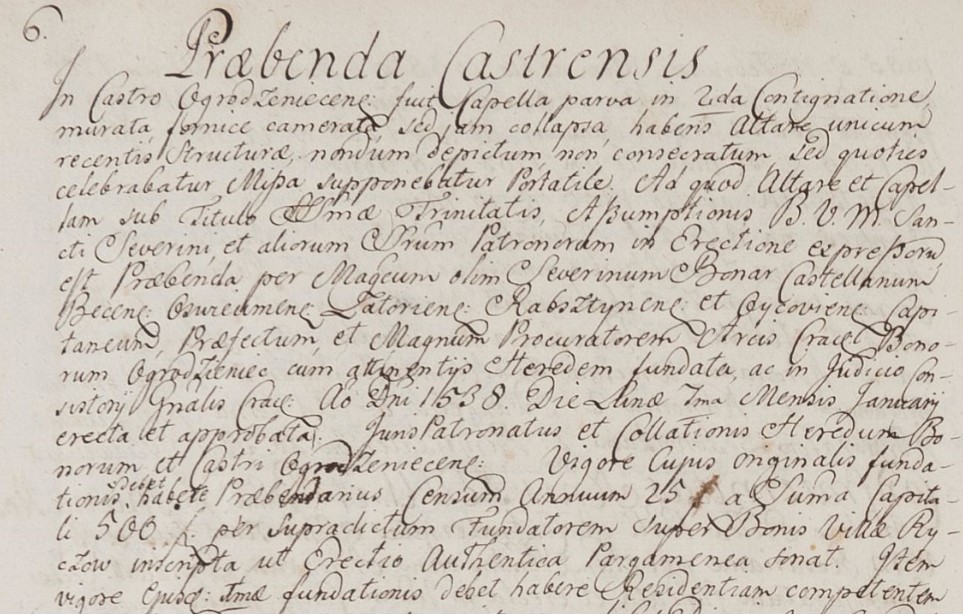 6.
Præbenda Castrensis
In Castro Ogrodzeniecen: fuit Capella parva in 2da Contignatione,
murata fornice camerata, sed jam collapsa habens Altare unicum
recentis Structuræ, nondum depictum, non consecratum, sed quoties
celebrabatur Missa supponebatur Portatile. Ad quod Altare et Capel-
lam sub Titulo SSmæ Trinitatis, Assumptionis B. V. M. San-
cti Severini, et aliorum SSrum Patronorum in Erectione expressorum
est Præbenda per Magcum olim Severinum Bonar Castellanum
Biecen: Osviecimen: Zatorien: Rabsztynen: et Oycovien: Capi-
taneum, Præfectum, et Magnum Procuratorem Arcis Crac et Bono-
rum Ogrodzieniec cum attinentijs Heredem fundata, ac in Judicio Con-
sistorij Gnalis Crac: Ao Dni 1538. Die Lunæ 7ma Mensis Januarij
erecta et approbata. Juris Patronatus et Collationis Heredum Bo-
norum et Castri Ogrodzeniecen: Vigore cujus originalis funda-
tionis debet habere Præbendarius Censum Annuum 25 a Suma Capita-
li 500 f. per supradictum Fundatorem super Bonis Villæ Ry-
czow inscripta ut Erectio Authentica Pargamenea sonat. Item
vigore Ejusd: fundationis debet habere Residentiam competentem